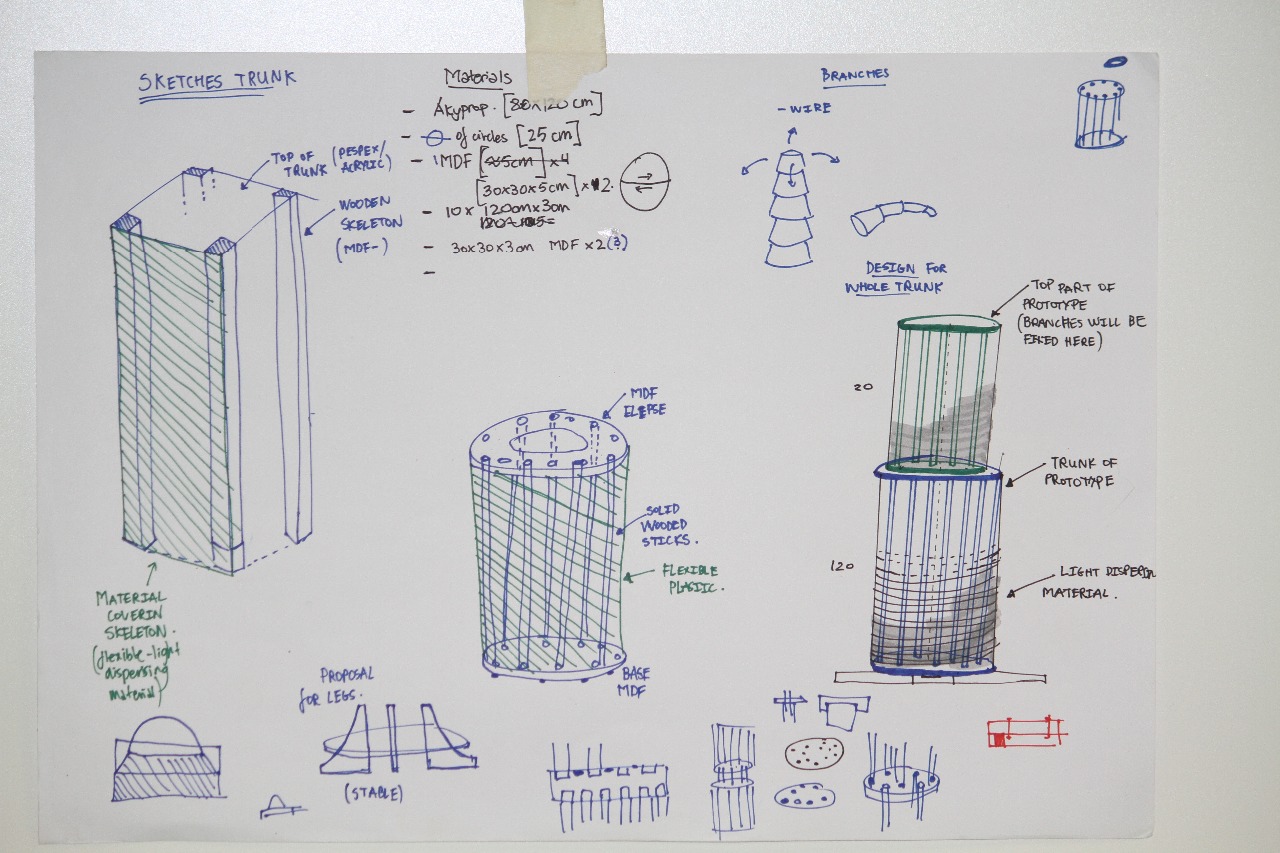 SKETCHES TRUNK
TOP OF
TRUNK
(PESPEX/
ACRYLIC)
WOODEN
SKELETON
(MDF-)
MATERIAL
COVERIN
SKELETON.
(flexible-light
dispersing
material)
Materials
- Akyprop. [80x120cm]
- of circles [25cm]
- 1MDF [25cm] x4
[30x30x5cm] x 2.
- 10x 120cm x3cm
- 30x30x3cm MDF x2(3)
-
BRANCHES
- WIRE
DESIGN FOR
WHOLE TRUNK
TOP PART OF
PROTOTYPE
(BRANCHES WILL BE
FIXED HERE)
20
TRUNK OF
PROTOTYPE
120
LIGHT DISPERIN
MATERIAL.
MDF
ELEPSE
SOLID
WOODED
STICKS.
FLEXIBLE
PLASTIC.
BASE
MDF
PROPOSAL
for LEGS.
(STABLE)